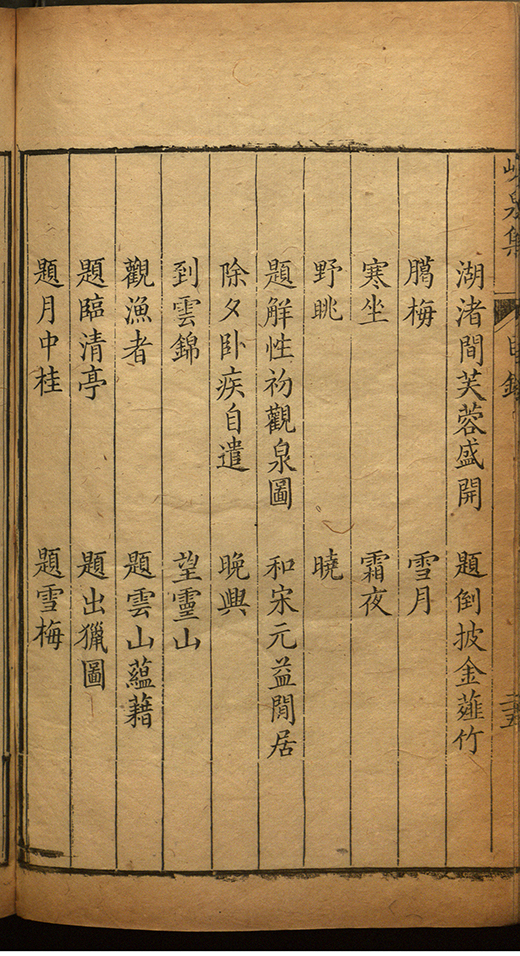 峴泉集
目錄
二五
湖渚間芙蓉盛開 題倒披金薤竹
臈梅 雪月
寒坐 霜夜
野眺 曉
題解性初觀泉圖 和宋元益閒居
除夕卧疾自遣 晚興
到雲錦 望靈山
觀漁者 題雲山蘊藉
題臨清亭 題出獵圖
題月中桂 題雪梅